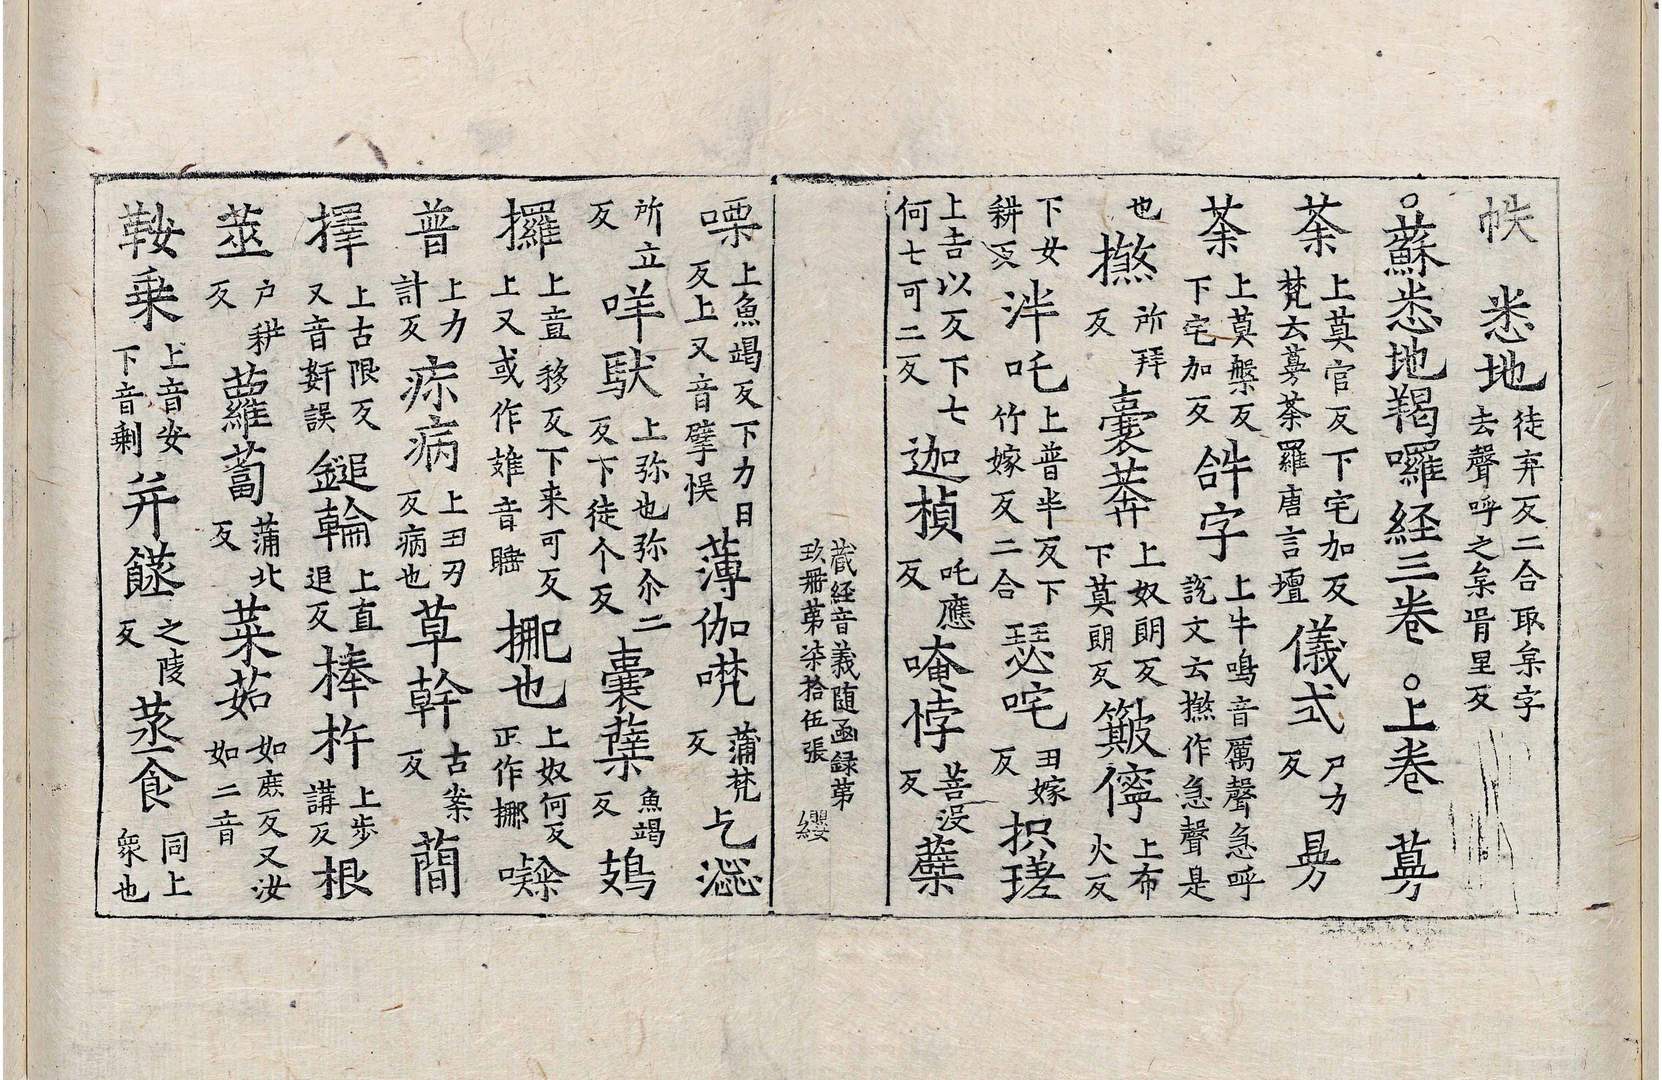 帙 悉地 徒弃反二合取㒵字去聲呼之㒵㫺里反
。蘇悉地羯囉經三卷 。上卷 蔓
荼 上莫官反下宅加反梵云蔓荼羅唐言壇 儀式 尸力反 昜
荼 上莫槃反下宅加反 𠱥字 上牛鳴音厲聲急呼說文云撚作急聲是
也 撚 所拜反 囊莽 上奴朗反下莫朗反 簸儜 上布火反
下女耕反 泮吒 上普半反下竹嫁反二合 瑟咤 丑嫁反 抧瑳
上吉以反下七何七可二反 迦楨 吒應反 唵悖 菩没反 蘖
藏經音義隨函錄第玖冊第柒拾伍張 纓
㗚 上魚竭反下力日反上又音孽悮 薄伽梵 蒲梵反 乞澁
所立反 咩馱 上弥也弥尒二反下徒个反 囊蘖 魚竭反 鴂
攞 上音移反下来可反上又或作雉音䏢 挪也 上奴何反正作挪 㗫
普 上力計反 疢病 上丑刃反病也 草幹 古案反 蕳
擇 上古限反又音姧誤 鎚輪 上直追反 棒杵 上步講反 根
莖 户耕反 蘿蔔 蒲北反 菜茹 如庶反又汝如二音
鞍乗 上音安下音剩 并䭁 之陵反 蒸食 同上衆也